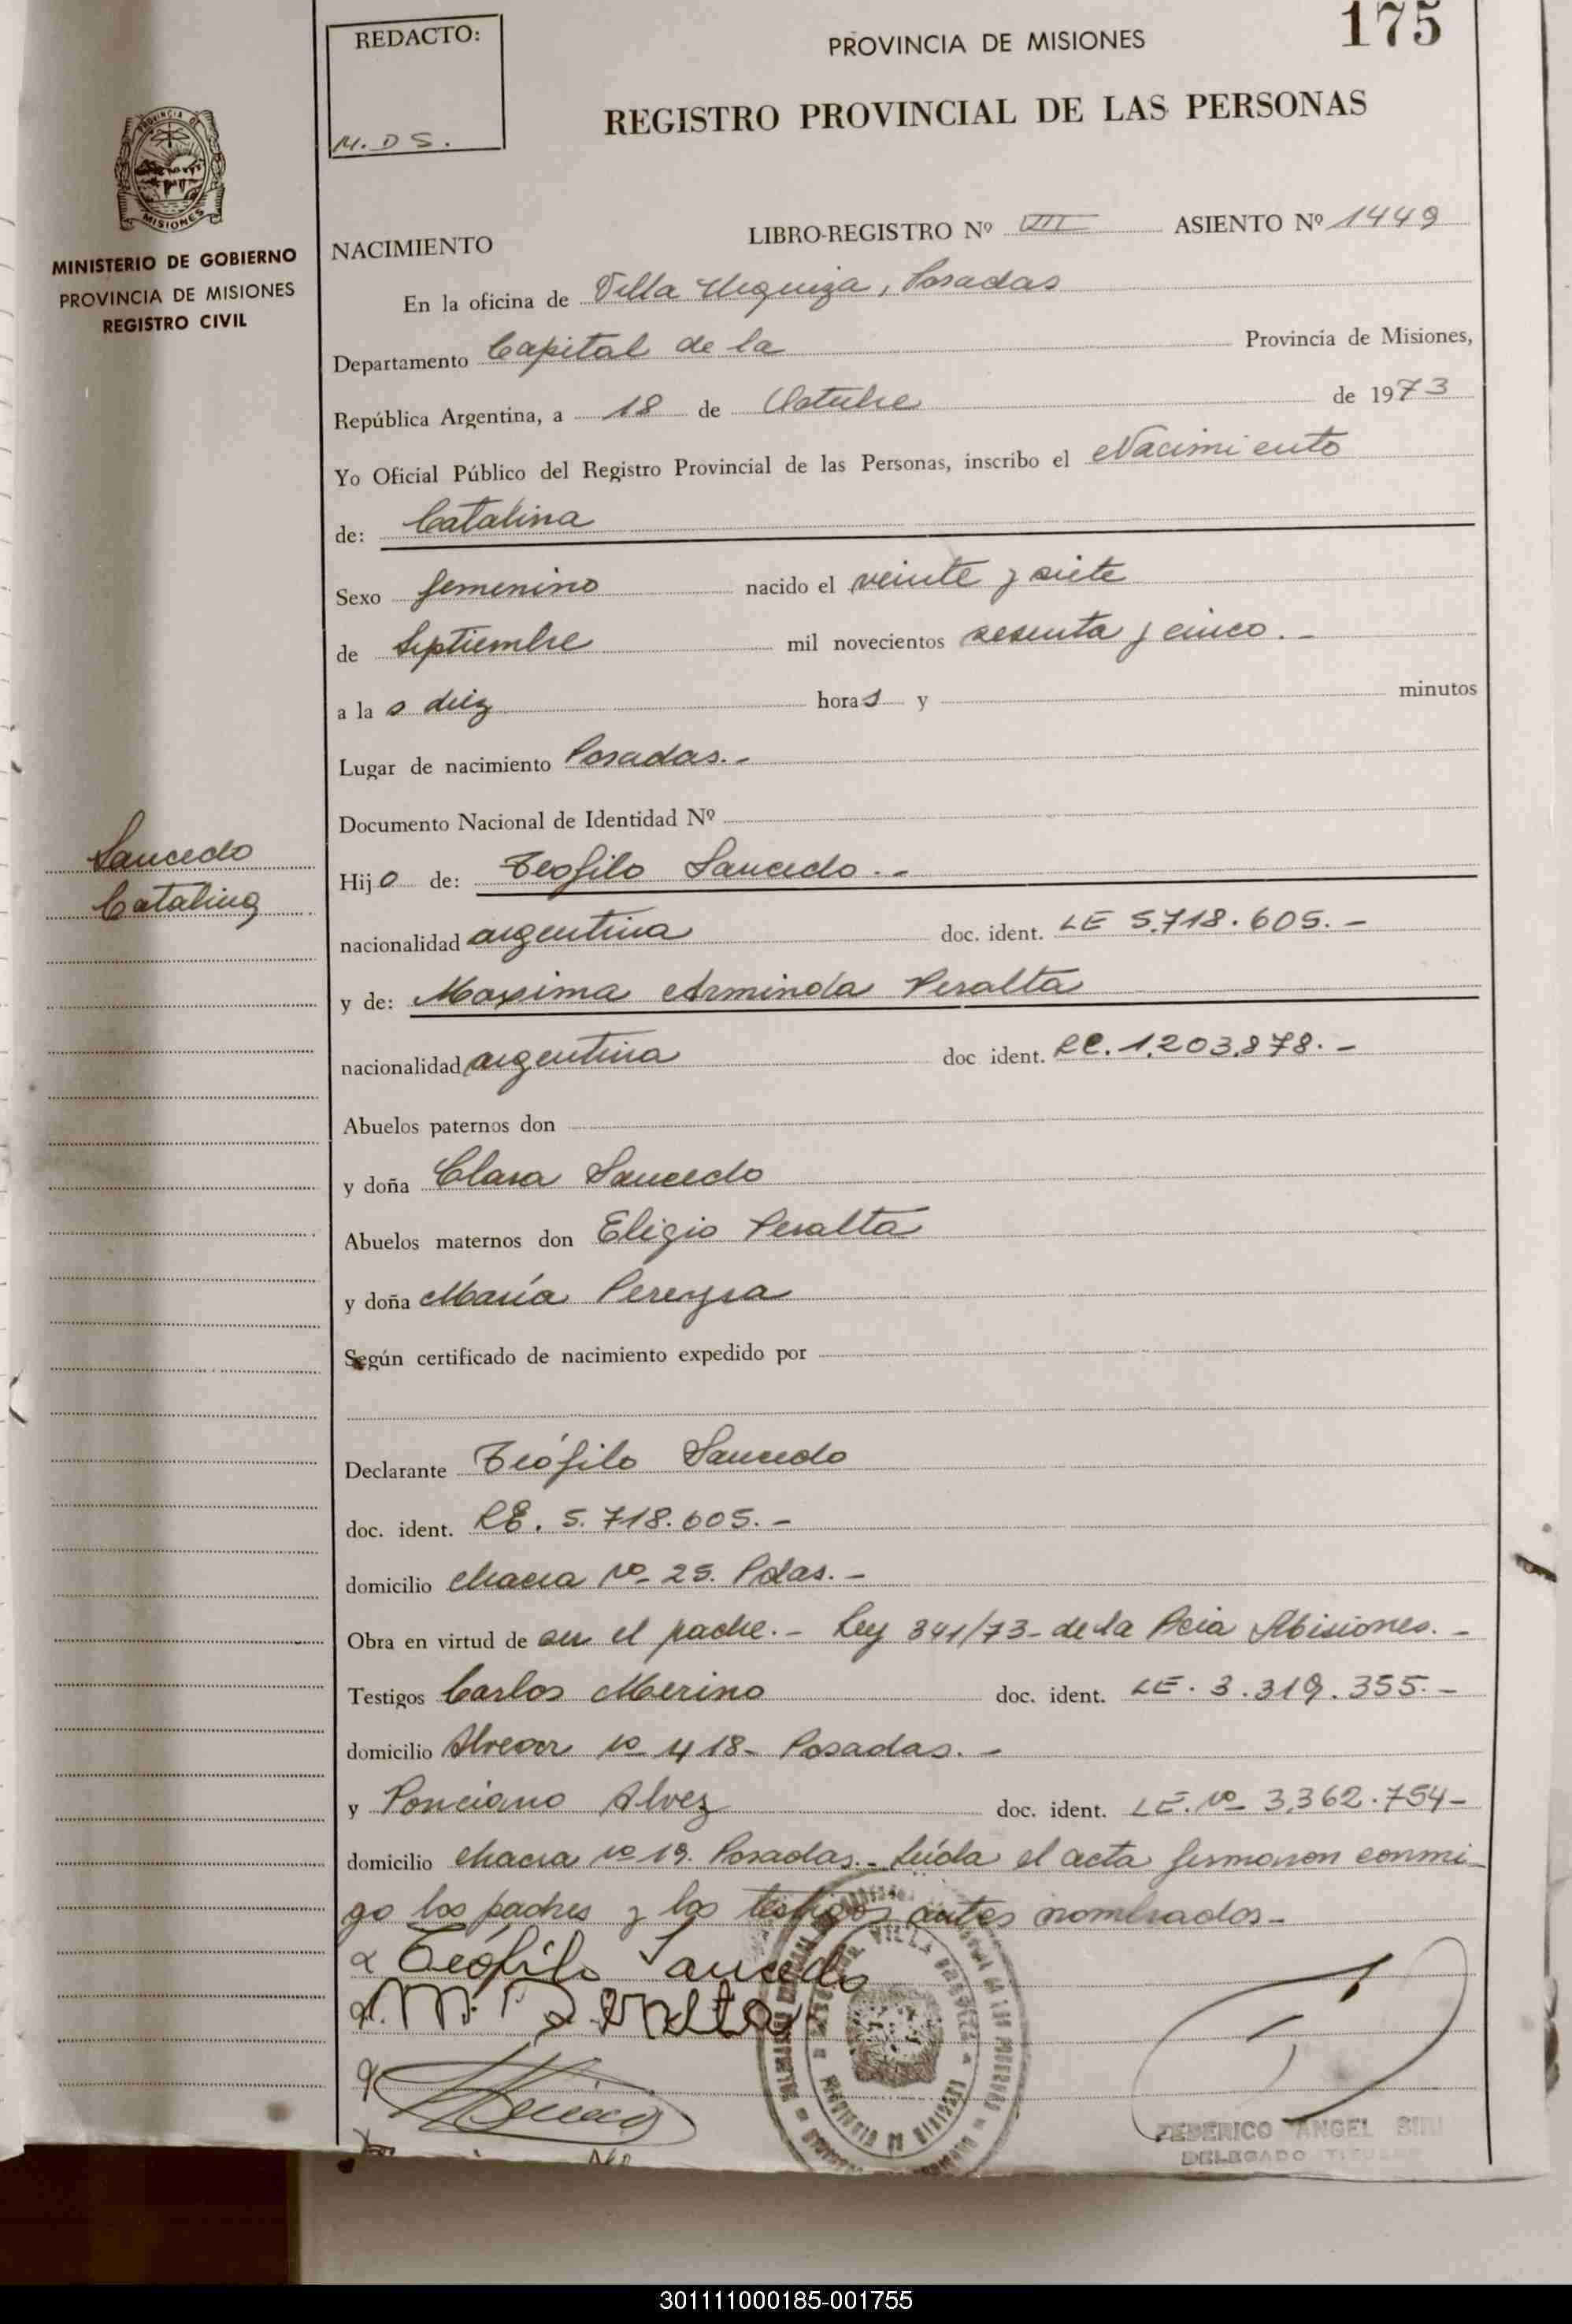 REDACTO:
M. D S.
PROVINCIA DE MISIONES
175
REGISTRO PROVINCIAL DE LAS PERSONAS
MISIONES
MINISTERIO DE GOBIERNO
PROVINCIA DE MISIONES
REGISTRO CIVIL
NACIMIENTO LIBRO-REGISTRO Nº VIII ASIENTO Nº 1449
En la oficina de Villa Urquiza, Posadas
Departamento Capital de la Provincia de Misiones,
República Argentina, a 18 de Octubre de 1973
Yo Oficial Público del Registro Provincial de las Personas, inscribo el Nacimiento
de: Catalina
Sexo femenino nacido el veinte y siete
de Septiembre mil novecientos sesenta y cinco. -
a la s diez horas y minutos
Lugar de nacimiento Posadas. -
Documento Nacional de Identidad Nº
Saucedo
Catalina
Hija de: Teofilo Saucedo. -
nacionalidad argentina doc. ident. LE 5.718.605. -
y de: Maxima Arminda Peralta
nacionalidad argentina doc ident. LC. 1.203.878. -
Abuelos paternos don
y doña Clara Saucedo
Abuelos maternos don Eligio Peralta
y doña María Pereyra
Según certificado de nacimiento expedido por
Declarante Teófilo Saucedo
doc. ident. LE. 5.718.605. -
domicilio chacra Nº 25. Pdas. -
Obra en virtud de ser el padre. - Ley 341/73 - de la Pcia Misiones. -
Testigos Carlos Merino doc. ident. LE. 3.319.355. -
domicilio Alvear Nº 418 - Posadas. -
y Ponciano Alvez doc. ident. LE. Nº 3.362.754 -
domicilio chacra Nº 19. Posadas. - Leída el acta firmaron conmi-
go los padres y los testigos antes nombrados -
Teófilo Saucedo
M. Peralta
VILLA URQUIZA
PROVINCIA DE MISIONES
FEDERICO ANGEL
DELEGADO
301111000185-001755